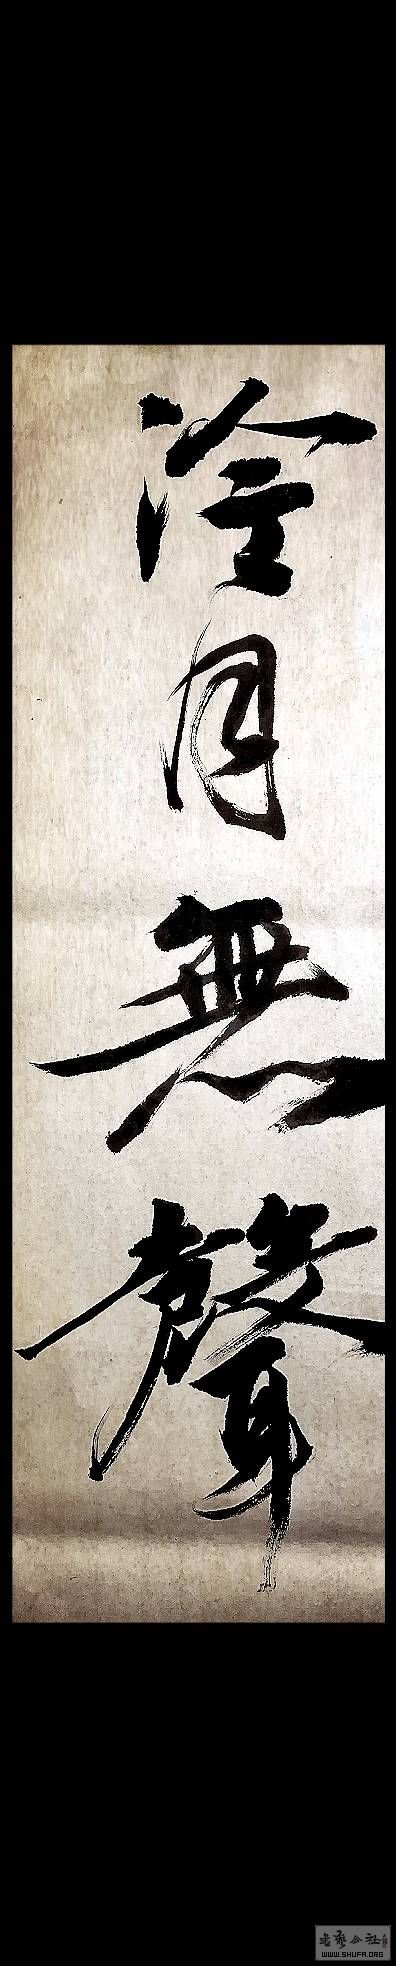 冷月無聲
書藝公社
WWW.SHUFA.ORG